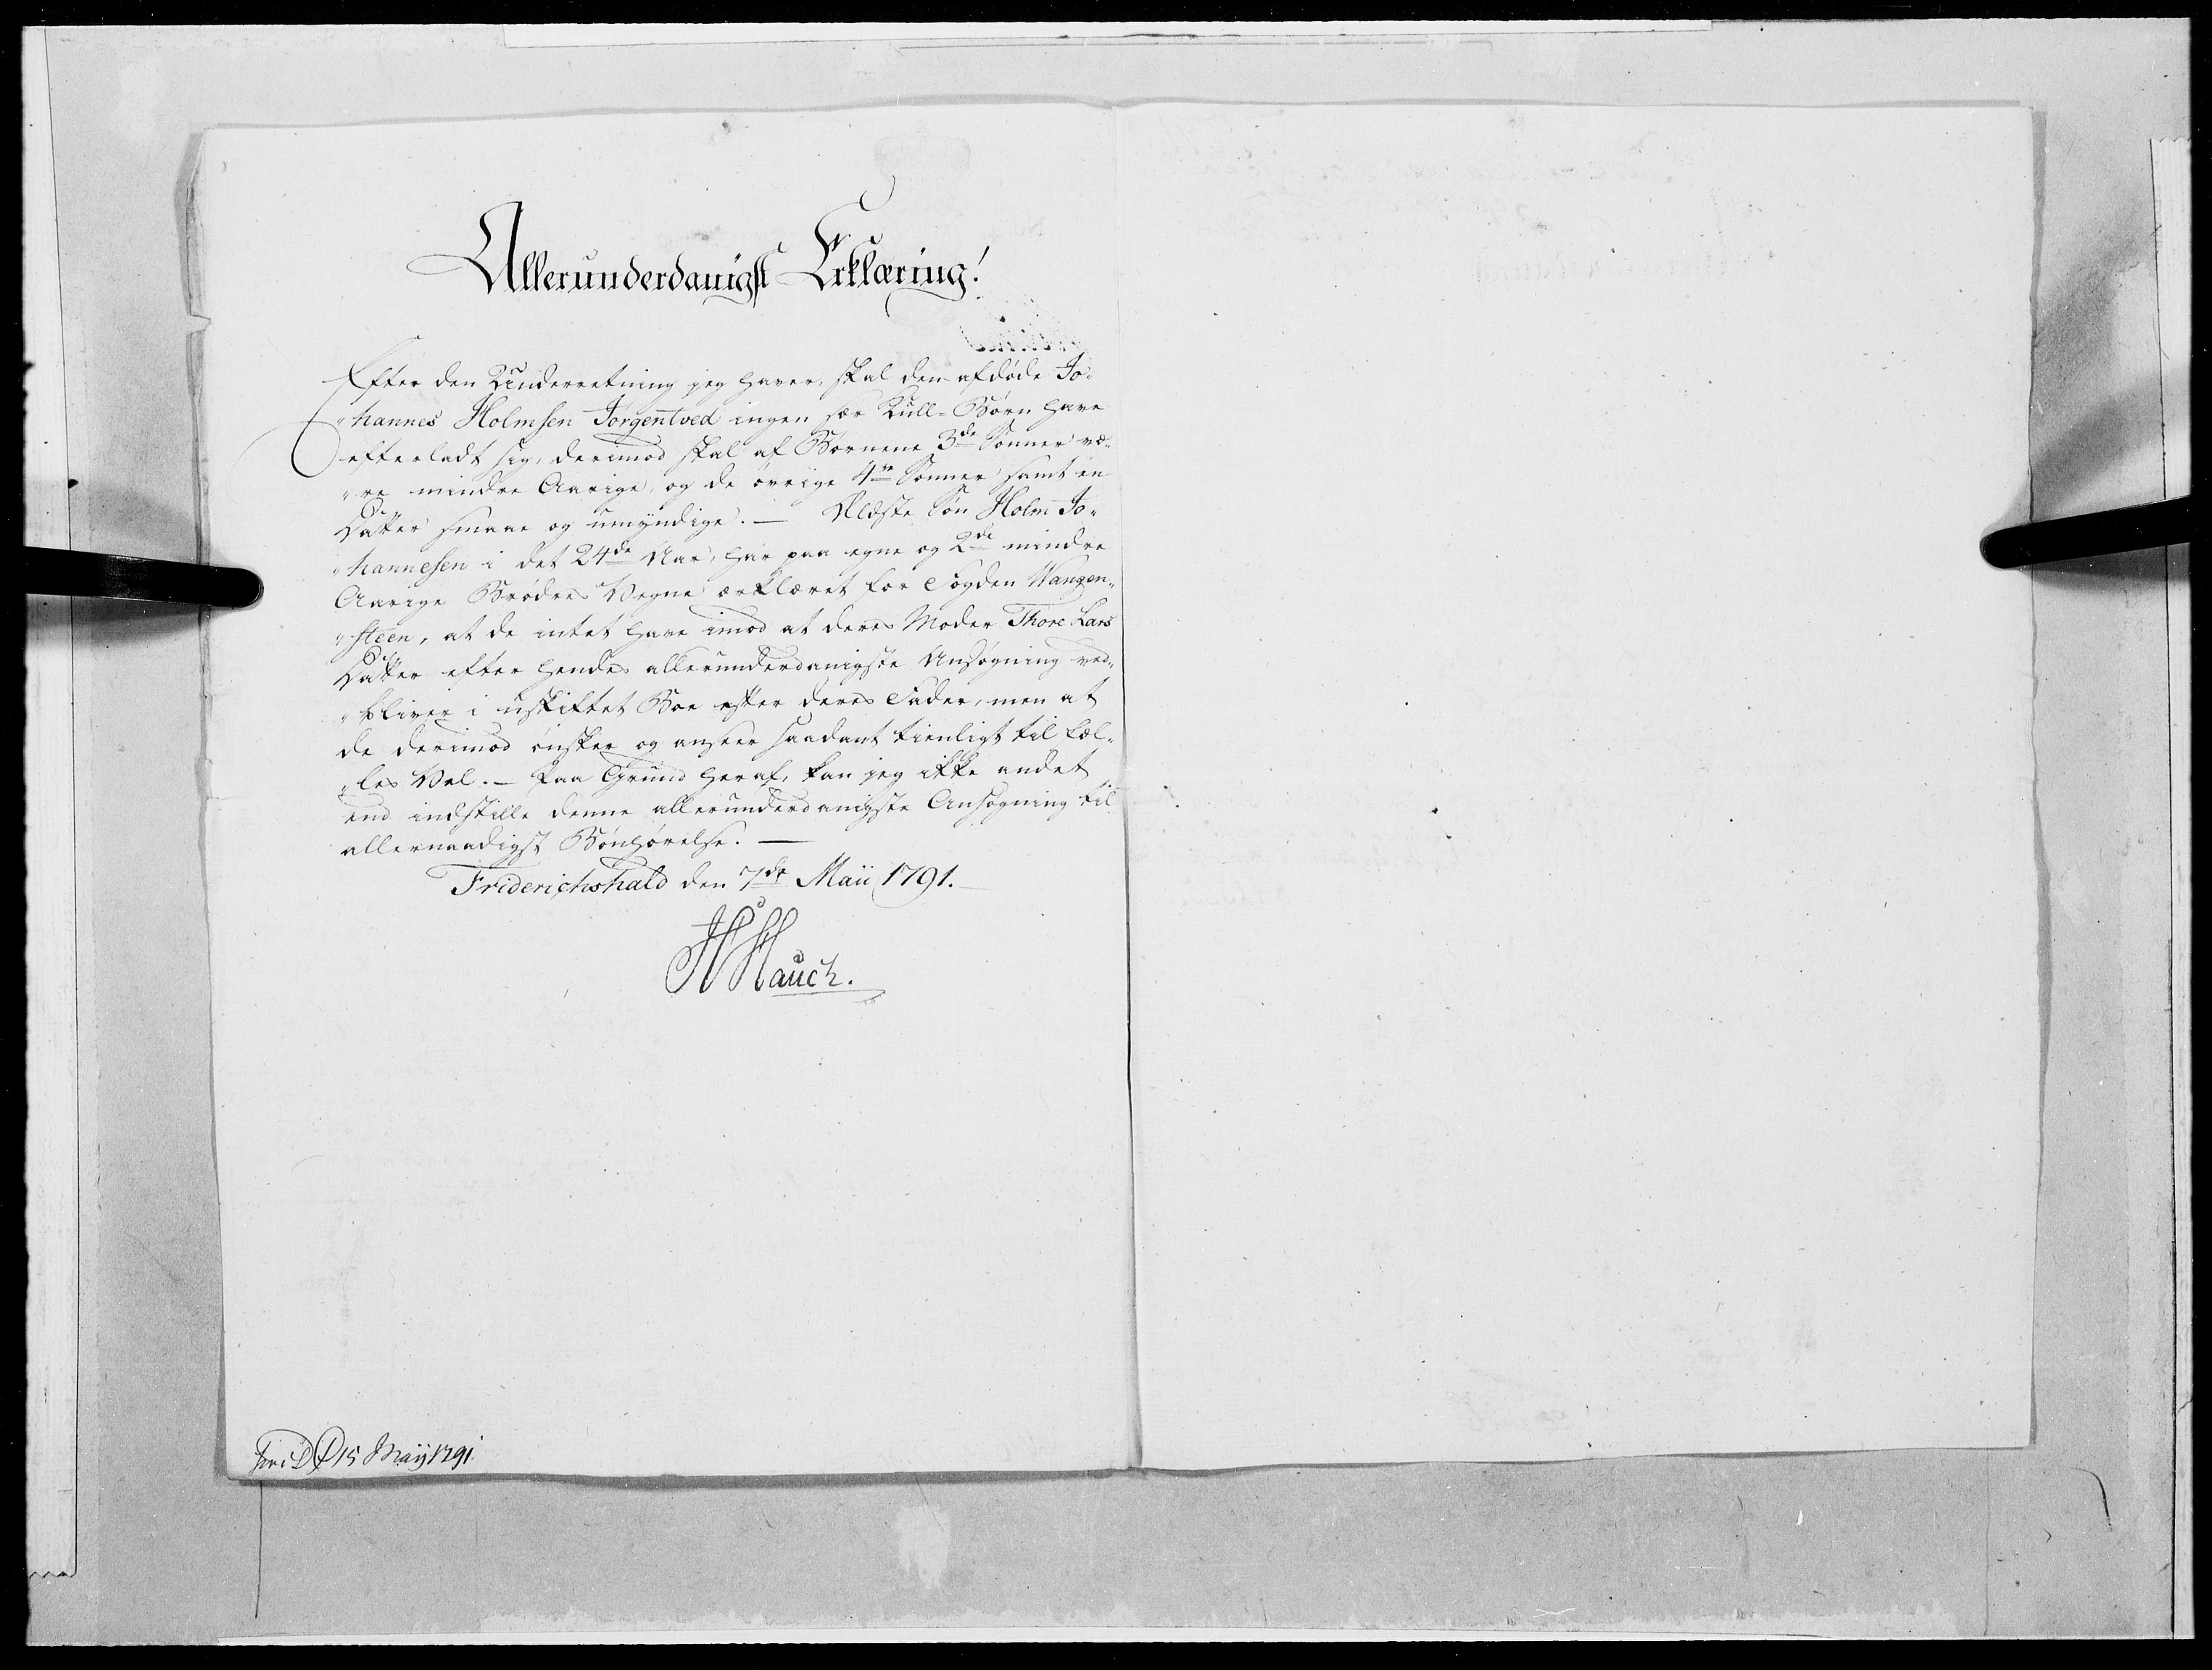 Allerunderdanigst Erklæring!
Efter den Underretning jeg haver, skal den afdøde Jo„
„hannes Holmsen Jörgentved ingen sær Kull-Børn have
efterladt sig, derimod skal af Børnene 3de Sønner væ„
„re mindre Aarige, og de øvrige 4re Sønner samt en
Datter smaae og umyndige. — Ældste Søn Holm Jo„
„hannesen i det 24de Aar, har paa egne og 2de mindre
Aarige Brødres Vegne erklæret for Fogden Wangen„
„steen, at de intet have imod at deres Moder Thore Lars
Datter efter hendes allerunderdanigste Ansøgning ved„
„bliver i uskiftet Boe efter deres Fader, men at
de derimod ønsker og anseer saadant tienligt til fæl„
„les Vel. — Paa Grund heraf, kan jeg ikke andet
end indstille denne allerunderdanigste Ansøgning til
allernaadigst Bønhørelse. —
Friderichshald den 7de Maii 1791.
H Hauch.
15 Maij 1791